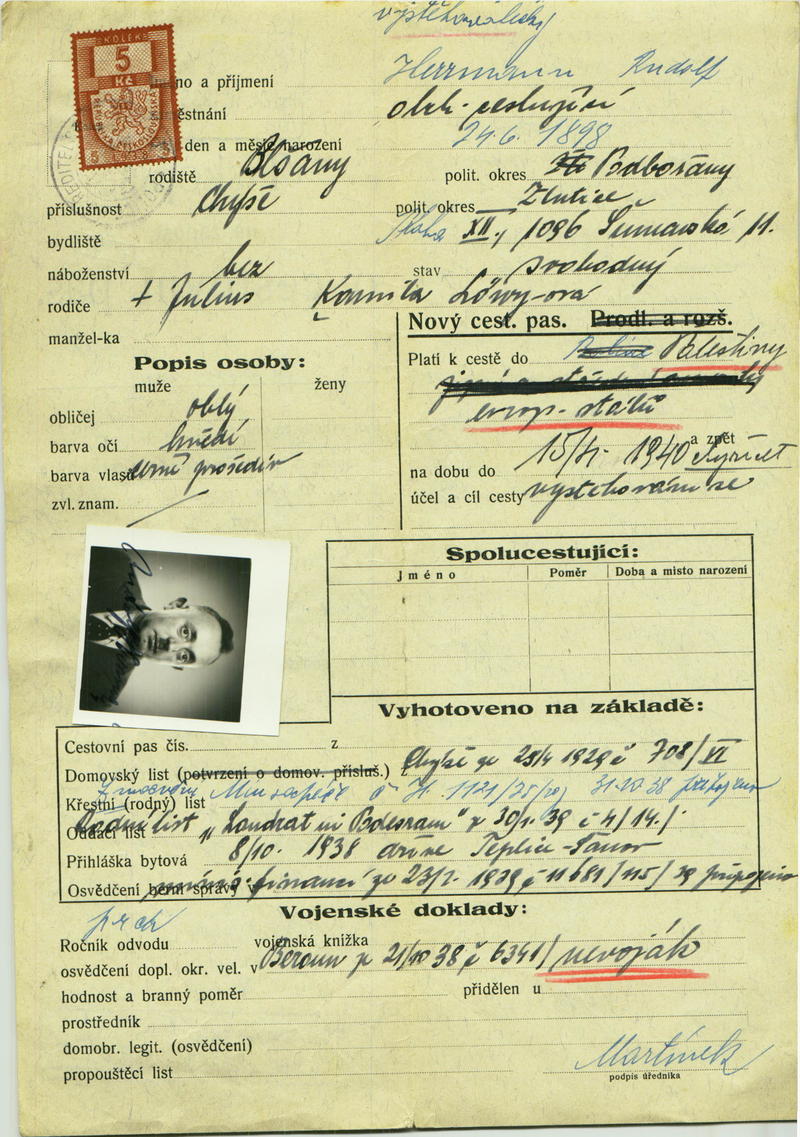 vystěhovalecký
KOLEK
5
Kč
Jméno a příjmení Herrmann Rudolf
městnání obch. cestující
den a měsíc narození 24.6. 1898
rodiště Blšany polit. okres Podbořany
příslušnost Chyše polit. okres Žlutice
bydliště Praha XII., 1096 Šumavská 11.
náboženství bez stav svobodný
rodiče + Július Kamila Löwy-ová
manžel-ka
Nový cest. pas. Prodl. a rozš.
Popis osoby:
muže ženy
Platí k cestě do Palestiny
evrop. států
obličej oblý
barva očí hnědé
barva vlasů černé prošediv
zvl. znam.
a zpět
na dobu do 15/4. 1940
účel a cíl cesty vystěhování se
Spolucestující:
Jméno Poměr Doba a místo narození
Vyhotoveno na základě:
Cestovní pas čís. z
Domovský list (potvrzení o domov. přísluš.) z Chyše ze 25/4 1929 č 708/VI
Křestní (rodný) list 31.10.38
Oddací list Rodný list „Landrat in 30/1. 39 č 4/14./
Přihláška bytová 8/10. 1938 dříve Teplice-Šanov
Osvědčení bern. správy v financí ze 23/2. 1939 č 11681/115/39 připojeno
Vojenské doklady:
Ročník odvodu vojenská knížka
osvědčení dopl. okr. vel. v Beroun ze 21/10 38 č 6341/ nevoják
hodnost a branný poměr přidělen u
prostředník
domobr. legit. (osvědčení)
propouštěcí list Martínek
podpis úředníka